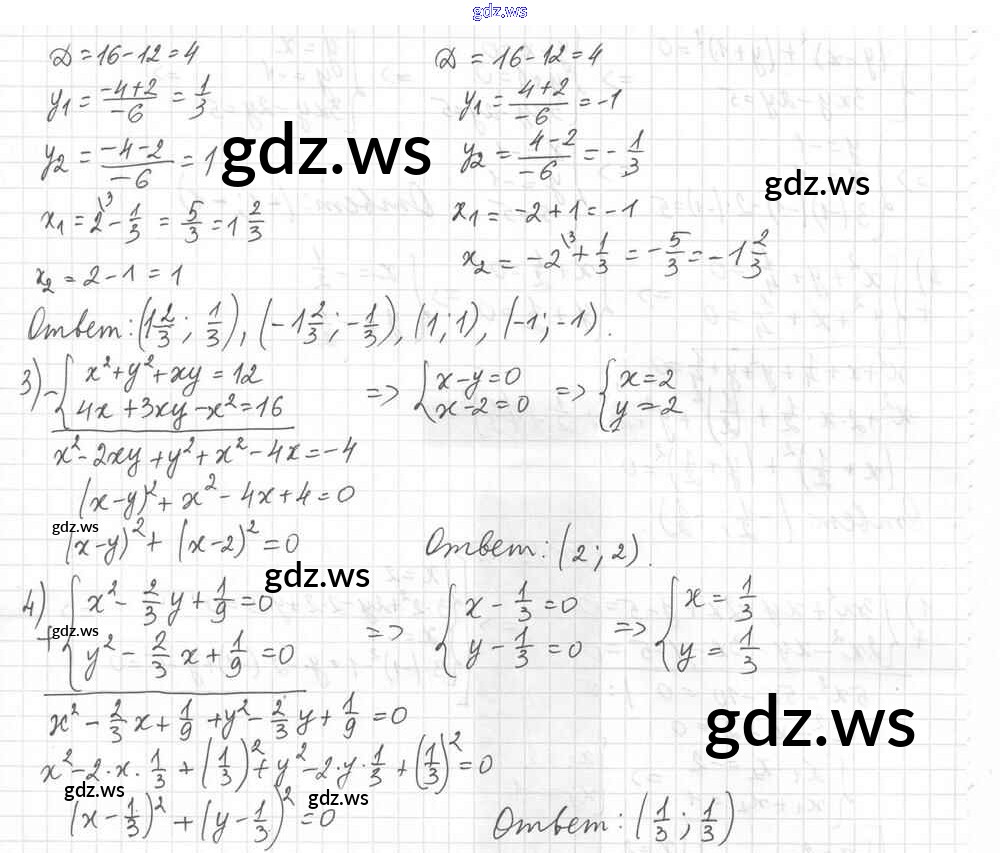 gdz.ws
D = 16-12 = 4
y₁ = (-4+2)/(-6) = 1/3
y₂ = (-4-2)/(-6) = 1
x₁ = 2\³ - 1/3 = 5/3 = 1 2/3
x₂ = 2-1 = 1
D = 16-12 = 4
y₁ = (4+2)/(-6) = -1
y₂ = (4-2)/(-6) = -1/3
x₁ = -2+1 = -1
x₂ = -2\³ + 1/3 = -5/3 = -1 2/3
gdz.ws
gdz.ws
Ответ: (1 2/3; 1/3), (-1 2/3; -1/3), (1; 1), (-1; -1).
3) - { x²+y²+xy = 12
4x+3xy-x² = 16
=> { x-y=0
x-2=0
=> { x=2
y=2
x²-2xy+y²+x²-4x=-4
(x-y)²+x²-4x+4=0
gdz.ws
(x-y)²+(x-2)²=0
Ответ: (2; 2).
gdz.ws
4) + { x² - 2/3 y + 1/9 = 0
y² - 2/3 x + 1/9 = 0
gdz.ws
=> { x - 1/3 = 0
y - 1/3 = 0
=> { x = 1/3
y = 1/3
x² - 2/3 x + 1/9 + y² - 2/3 y + 1/9 = 0
gdz.ws
x² - 2·x·1/3 + (1/3)² + y² - 2·y·1/3 + (1/3)² = 0
gdz.ws
gdz.ws
(x - 1/3)² + (y - 1/3)² = 0
Ответ: (1/3; 1/3)